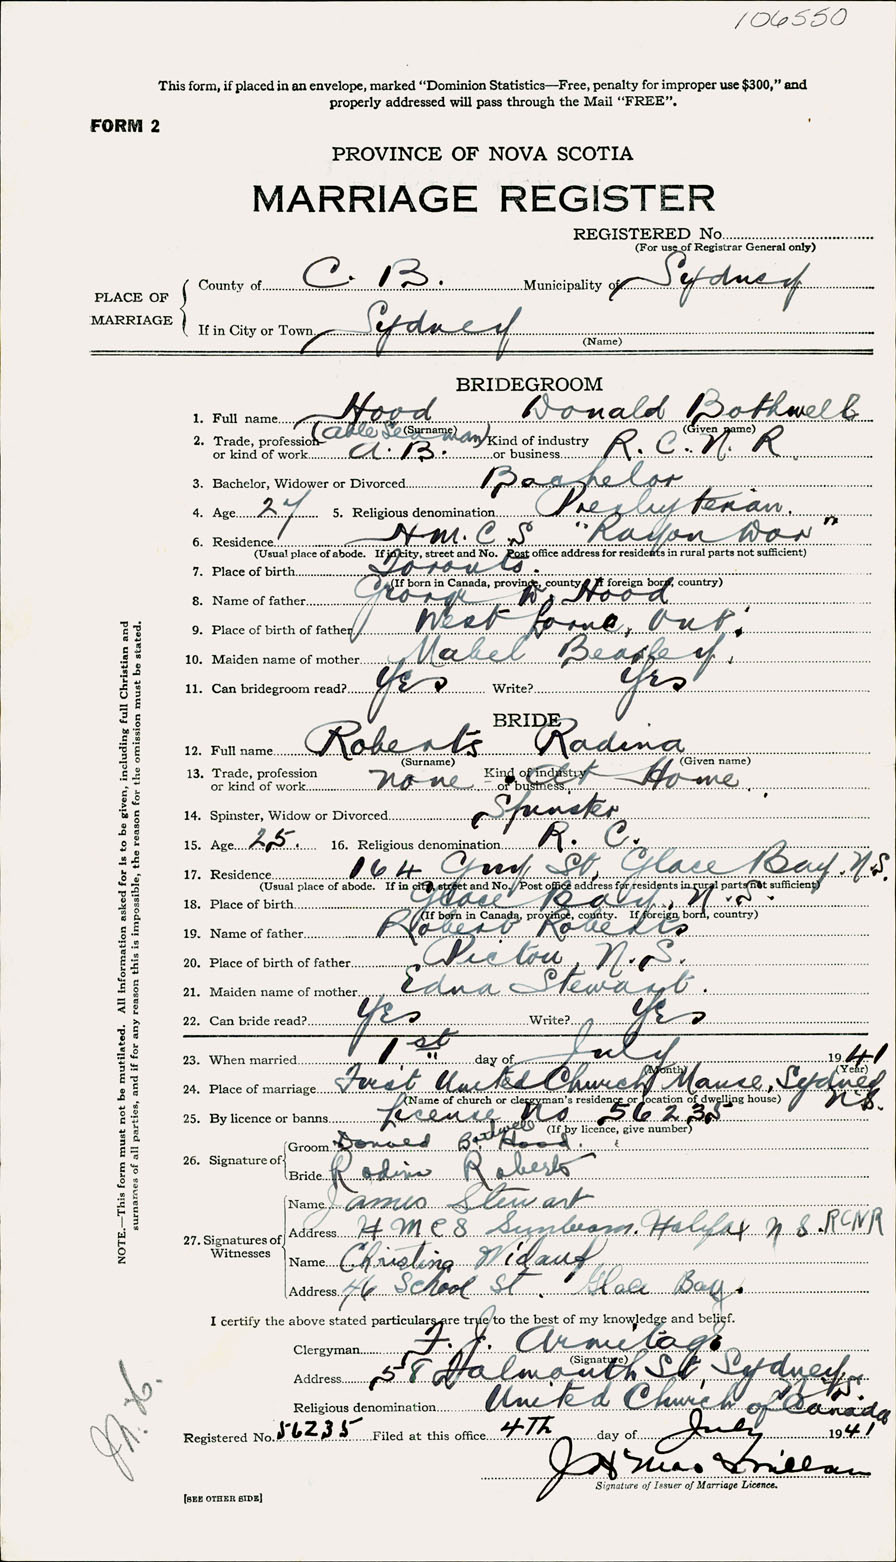 106550
This form, if placed in an envelope, marked “Dominion Statistics—Free, penalty for improper use $300,” and
properly addressed will pass through the Mail “FREE”.
FORM 2
PROVINCE OF NOVA SCOTIA
MARRIAGE REGISTER
REGISTERED No.
(For use of Registrar General only)
PLACE OF MARRIAGE
County of C. B. Municipality of Sydney
If in City or Town Sydney
(Name)
BRIDEGROOM
1. Full name Hood Donald Bothwell
(Surname) (Given name)
(able Seaman)
2. Trade, profession or kind of work A. B. Kind of industry or business R. C. N. R
3. Bachelor, Widower or Divorced Bachelor
4. Age 27 5. Religious denomination Presbyterian.
6. Residence H.M.C.S "Rayon Dor"
(Usual place of abode. If in city, street and No. Post office address for residents in rural parts not sufficient)
7. Place of birth Toronto.
(If born in Canada, province, county. If foreign born, country)
8. Name of father George Hood
9. Place of birth of father West Lorne, Ont.
10. Maiden name of mother Mabel Beasley.
11. Can bridegroom read? Yes Write? Yes
BRIDE
12. Full name Roberts Radina
(Surname) (Given name)
13. Trade, profession or kind of work none Kind of industry or business At Home
14. Spinster, Widow or Divorced Spinster
15. Age 25. 16. Religious denomination R. C.
17. Residence 164 St, Glace Bay, N.S.
(Usual place of abode. If in city, street and No. Post office address for residents in rural parts not sufficient)
18. Place of birth Glace Bay, N.S.
(If born in Canada, province, county. If foreign born, country)
19. Name of father Robert Roberts
20. Place of birth of father Pictou, N.S.
21. Maiden name of mother Edna Stewart.
22. Can bride read? Yes Write? Yes
23. When married 1st day of July 1941
(Month) (Year)
24. Place of marriage First United Church Manse, Sydney N.S.
(Name of church or clergyman's residence or location of dwelling house)
25. By licence or banns License No 56235
(If by licence, give number)
26. Signature of Groom Donald Bothwell Hood.
Bride Radina Roberts
27. Signatures of Witnesses
Name James Stewart
Address HMCS Sunbeam. Halifax N S. RCNR
Name Christina
Address 46 School St. Glace Bay.
I certify the above stated particulars are true to the best of my knowledge and belief.
Clergyman F. J. Armitage
(Signature)
Address 58 St, Sydney, N.S.
Religious denomination United Church of Canada
Registered No. 56235 Filed at this office 4TH day of July 1941
J H MacMillan
Signature of Issuer of Marriage Licence.
[SEE OTHER SIDE]
NOTE.—This form must not be mutilated. All information asked for is to be given, including full Christian and
surnames of all parties, and if for any reason this is impossible, the reason for the omission must be stated.